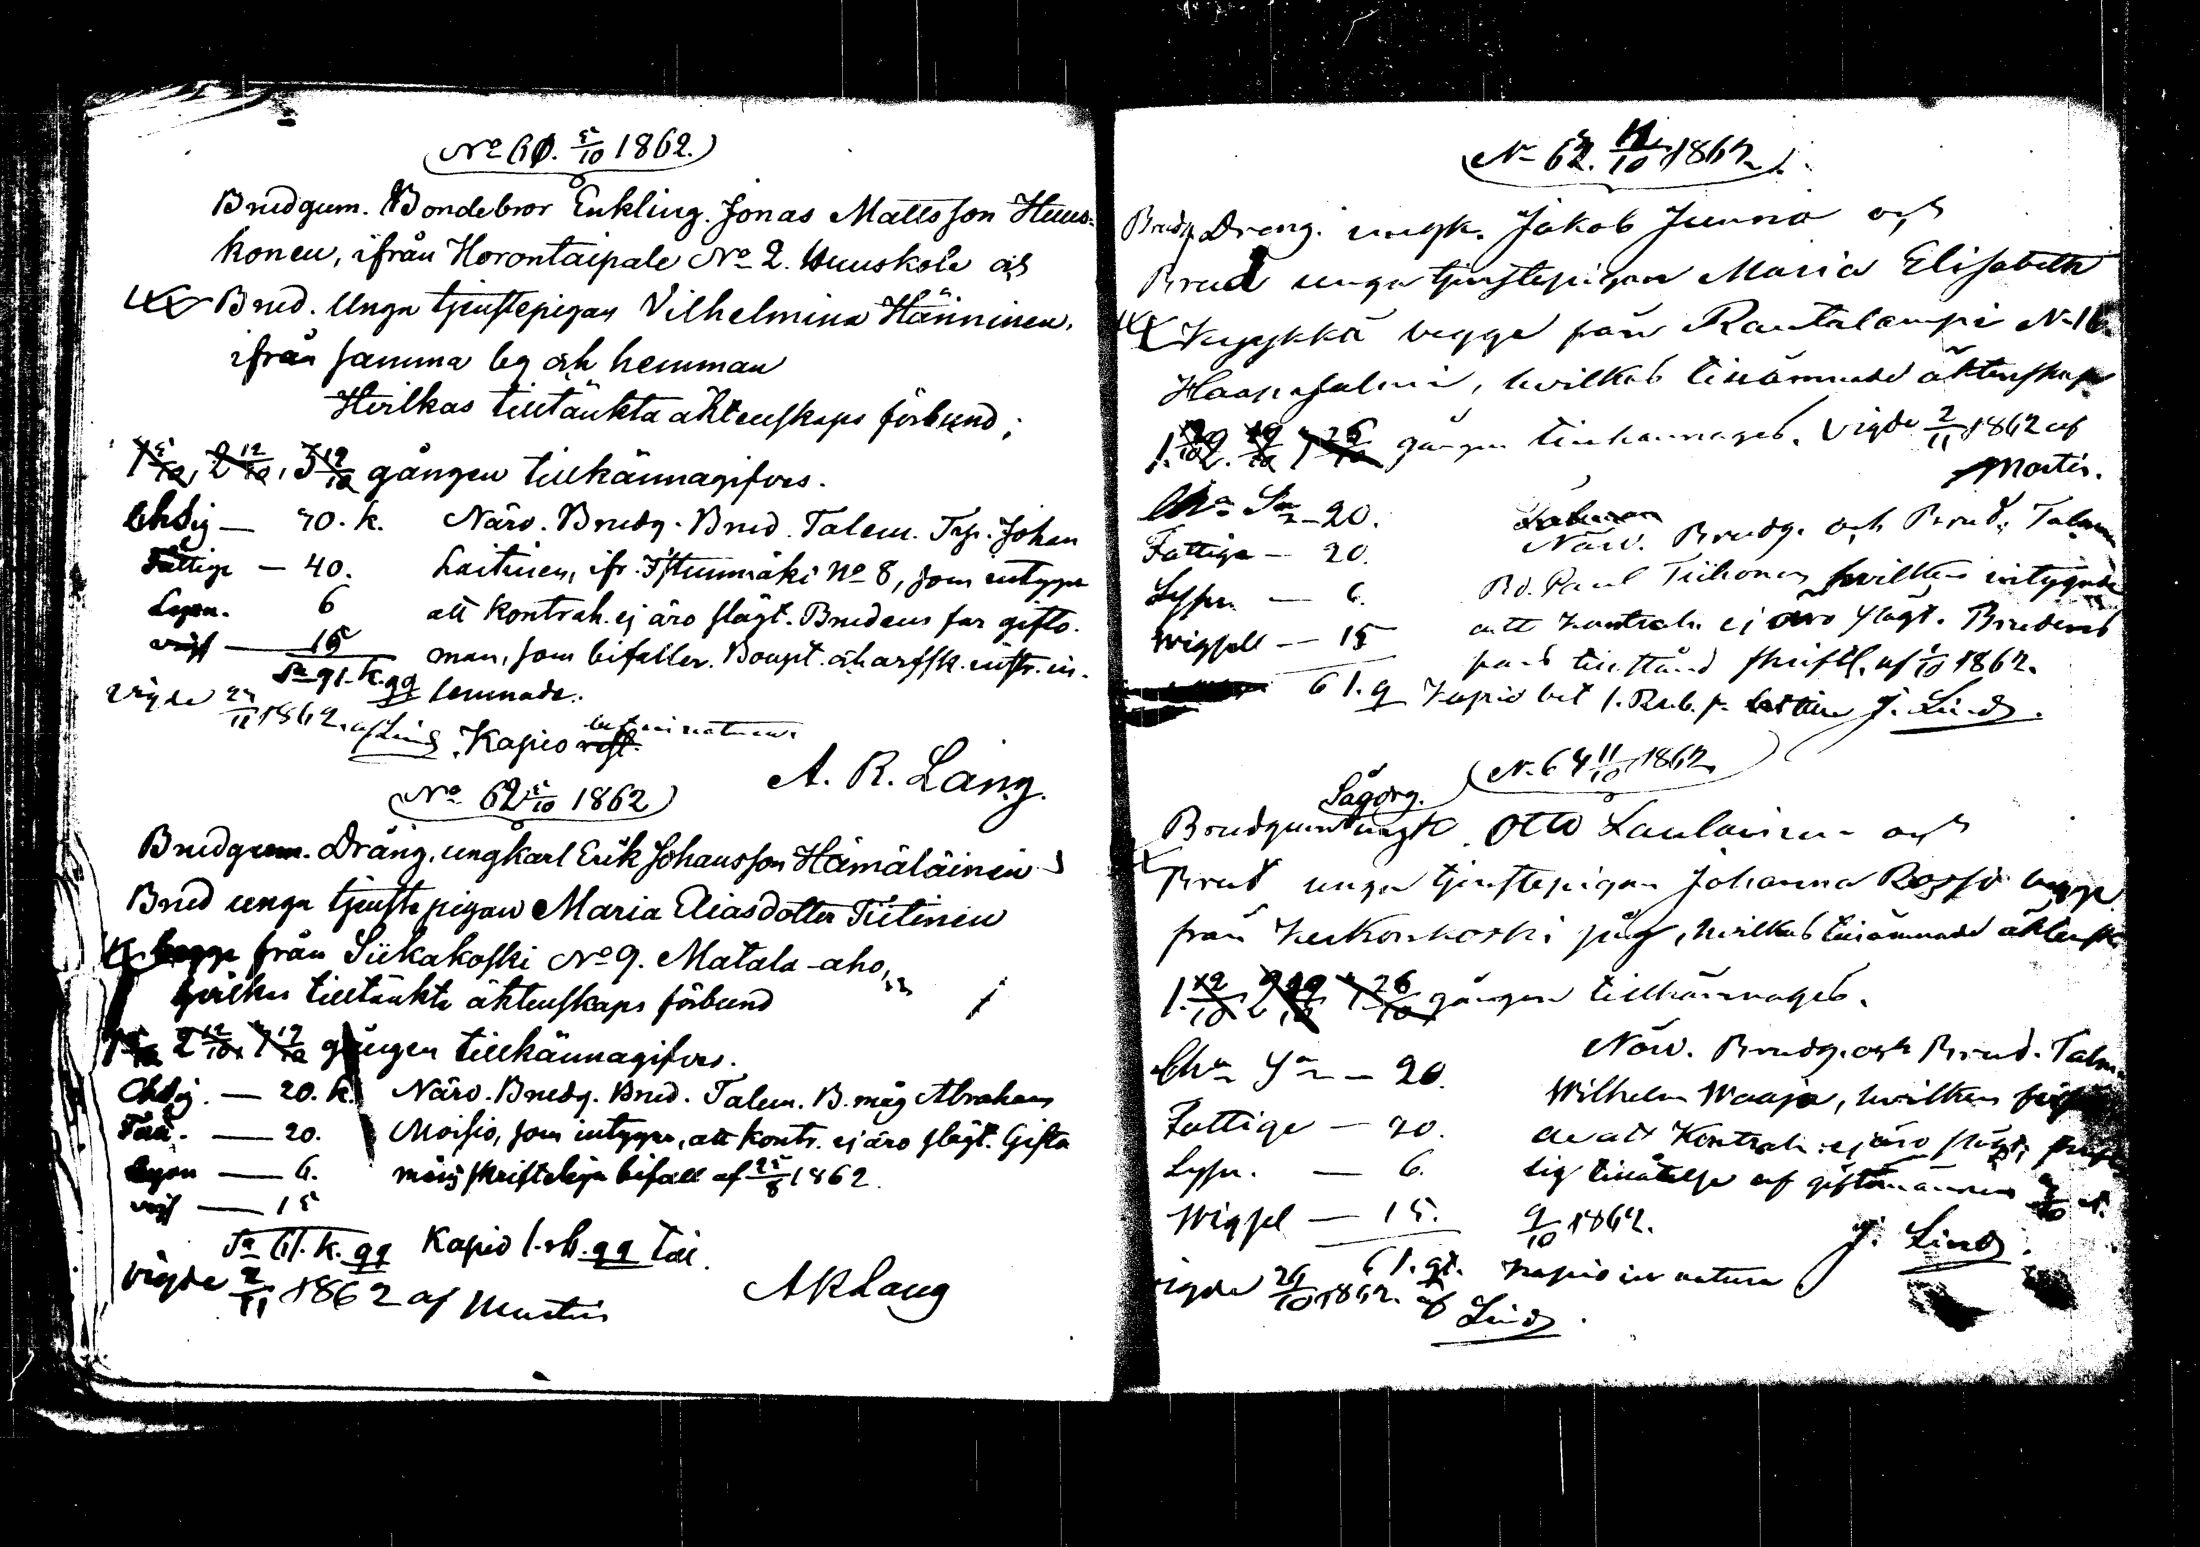 No 61. 5/10 1862.
Brudgum. Bondebror Enkling. Jonas Mattsson Huus-
konen, ifrån Horontaipale No 2. Huuskola och
Brud. Unga tjenstepigan Vilhelmina Hänninen,
ifrån samma by och hemman
Hvilkas tilltänkta äktenskaps förbund;
1 5/10, 2 12/10, 3 19/10 gången tillkännagifves.
Chdig — 20. k. Närv. Brudg. Brud. Talem. Trp. Johan
Fattige — 40. Laitinen, ifr. Istunmäki No 8, som intygar
Lysn. 6 att kontrah. ej äro slägt. Brudens far gifto-
vigs — 15 man, som bifaller. Boupt. och arfsk. instr. in-
Sa 91. k. gg lemnade.
Vigde 2/11 1862. af Lind. Kapio bet. in natura
A. R. Lang.
No 62 5/10 1862
Brudgum. Dräng. ungkarl Erik Johansson Hämäläinen
Brud unga tjenstepigan Maria Eliasdotter Tiitinen
begge från Siikakoski No 9. Matala-aho,
hvilkas tilltänkta äktenskaps förbund
1 5/10 2 12/10 19/10 gången tillkännagifves.
Chdig. — 20. k. Närv. Brudg. Brud. Talem. B. måg Abraham
Fatt. — 20. Moisio, som intygar, att kontr. ej äro slägt. Gifto
Lysn — 6. mäns skriftliga bifall af 25/8 1862.
vigs — 15
Sa 61. k. gg Kapio 1. rb. gg till.
Vigde 2/11 1862 af Mustin
A R Lang
N. 63. 12/10 1862.
Brudg. Dreng. ungk. Jakob Junna och
Brud unga tjenstepigan Maria Elisabeth
Kyykkä begge från Rautalampi N. 16.
Haapasalmi, hvilkas tillämnade äktenskap
1. 12/10 2. 19/10 26/10 gången tillkännages. Vigde 2/11 1862 af
Mortin.
Cha Sa — 20. Närv. Brudg. och Brud. Talem
Fattige — 20. Bd. Paul Tiihonen hvilken intygade
Lysn. — 6. att kontrah. ej äro slägt. Brudens
Wigsell — 15 fars tillstånd skriftl. af 1862.
61. g Kapio bet 1. Rub. J. Lind.
N. 64 11/10 1862
Sågdrg.
Brudgum ungk. Otto Laulainen och
Brud unga tjenstepigan Johanna Rossi begge
från Kerkonkoski såg, hvilkas tillämnade äktensk.
1. 12/10 2 19/10 26/10 gången tillkännages.
Närv. Brudg. och Brud. Talm.
Cha Sa — 20. Wilhelm Waaja, hvilken
Fattige — 20. de att Kontrah. ej äro slägt, skrift
Lysn. — 6. lig tillåtelse af giftomannen
Wigsel — 15. 9/10 1862.
61. gt. Kapio in natura J. Lind.
vigde 26/10 1862. af
Lind.